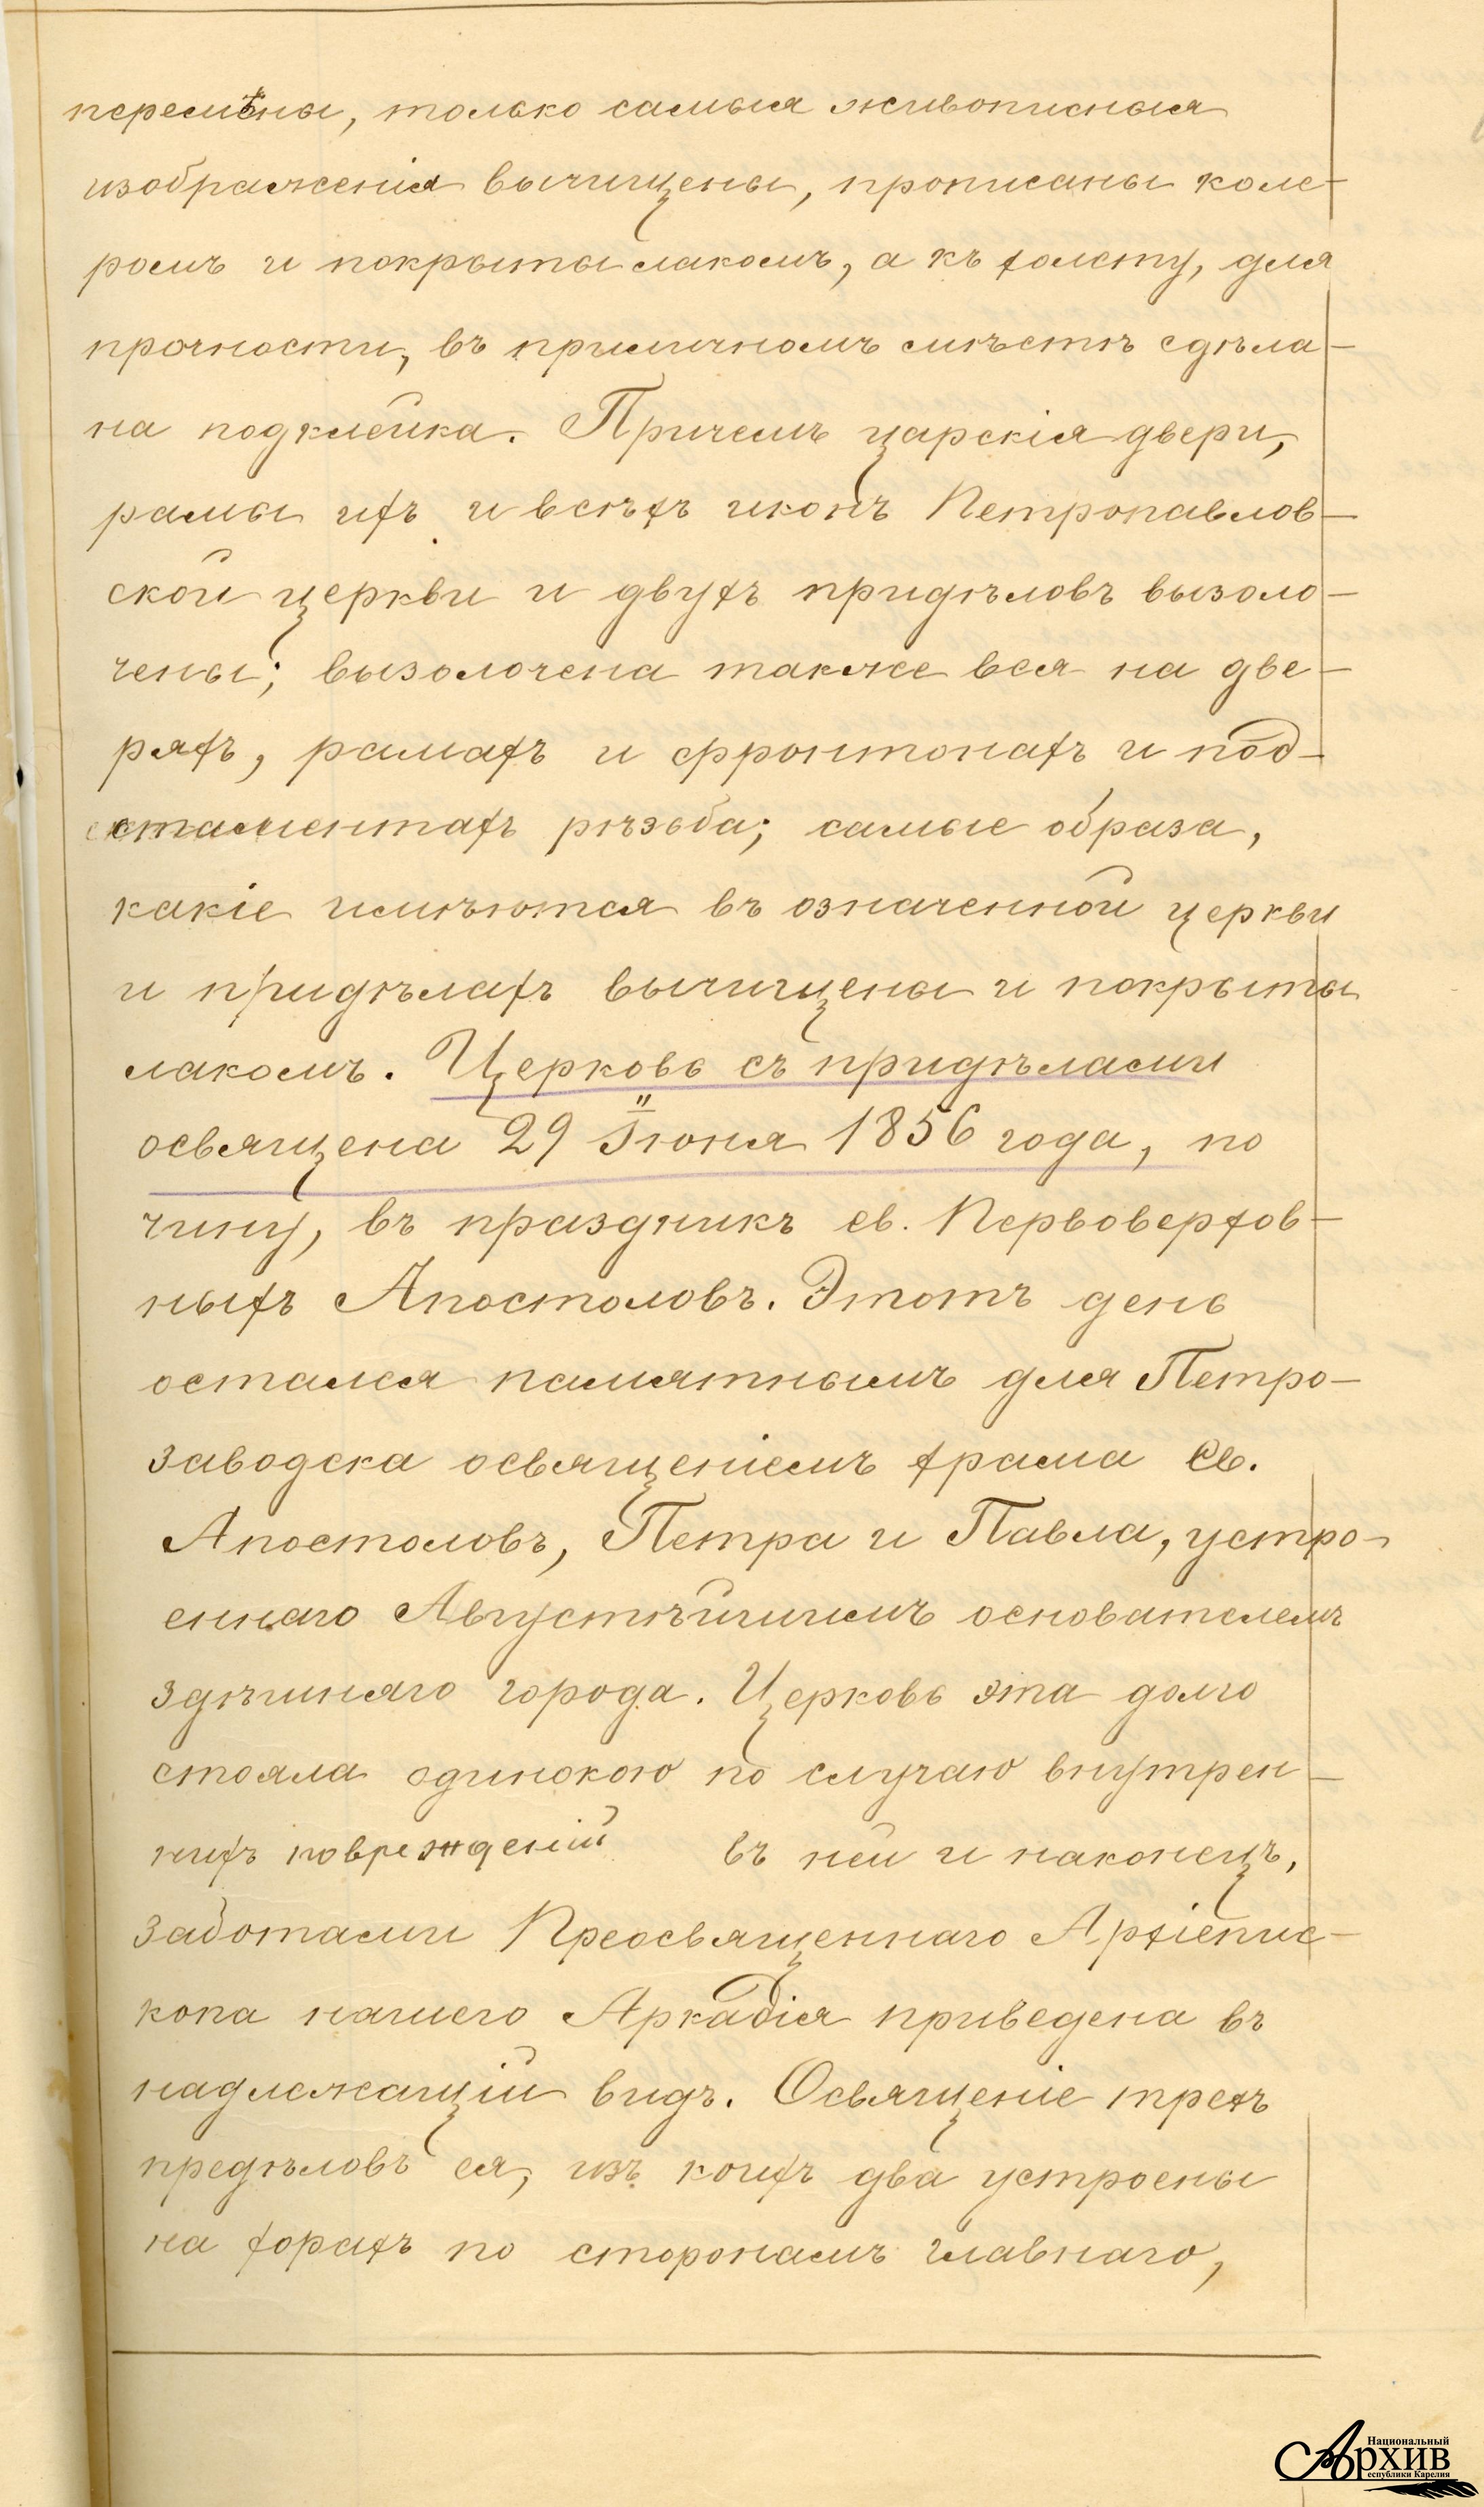 перемѣны, только самыя живописныя
изображенія вычищены, прописаны коле-
ромъ и покрыты лакомъ, а къ холсту, для
прочности, въ приличномъ мѣстѣ сдѣла-
на подклейка. Причемъ царскія двери,
рамы ихъ и всѣхъ иконъ Петропавлов-
ской церкви и двухъ придѣловъ вызоло-
чены; вызолочена также вся на две-
ряхъ, рамахъ и фронтонахъ и под-
стаментахъ рѣзьба; самые образа,
какіе имѣются въ означенной церкви
и придѣлахъ вычищены и покрыты
лакомъ. Церковь съ придѣлами
освящена 29 Іюня 1856 года, по
чину, въ праздникъ св. Первоверхов-
ныхъ Апостоловъ. Этотъ день
остался памятнымъ для Петро-
заводска освященіемъ храма Св.
Апостоловъ, Петра и Павла, устро-
еннаго Августѣйшимъ основателемъ
здѣшняго города. Церковь эта долго
стояла одинокою по случаю внутрен-
нихъ поврежденій въ ней и наконецъ,
заботами Преосвященнаго Архіепис-
копа нашего Аркадія приведена въ
надлежащій видъ. Освященіе трехъ
предѣловъ ея, изъ коихъ два устроены
на хорахъ по сторонамъ главнаго,
Национальный
Архив
Республики Карелия